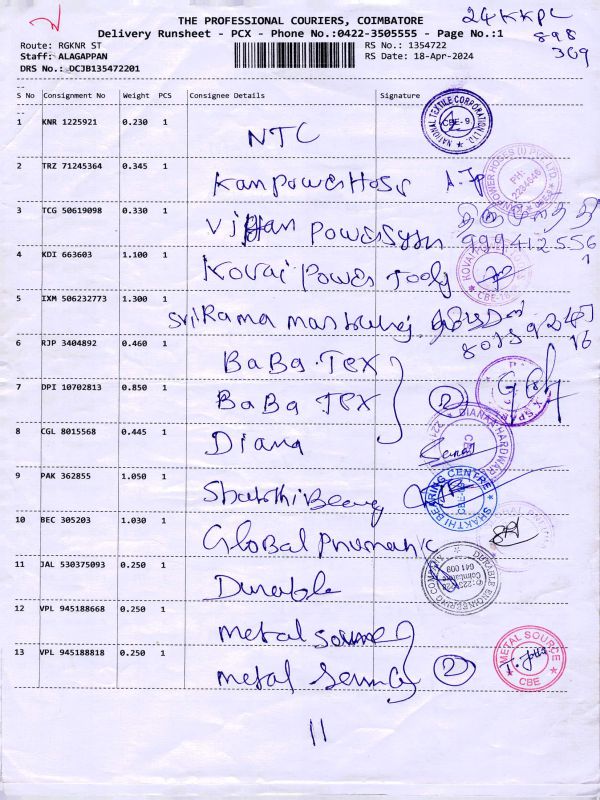 THE PROFESSIONAL COURIERS, COIMBATORE
Delivery Runsheet - PCX - Phone No.:0422-3505555 - Page No.:1
24KKPL
898
309
Route: RGKNR ST
RS No.: 1354722
Staff: ALAGAPPAN
RS Date: 18-Apr-2024
DRS No.: DCJB135472201
S No Consignment No Weight PCS Consignee Details Signature
1 KNR 1225921 0.230 1 NTC
NATIONAL TEXTILE CORPORATION LTD CBE-9
2 TRZ 71245364 0.345 1 KanPowerHose
3 TCG 50619098 0.330 1 Power System
999412556
1
4 KDI 663603 1.100 1 Kovai Power Tools
CBE-18
5 IXM 506232773 1.300 1 Sri Rama
16
6 RJP 3404892 0.460 1 BaBa TEX
7 DPI 10702813 0.850 1 BaBa TEX 2
8 CGL 8015568 0.445 1 Diana
DIANA HARDWARE
9 PAK 362855 1.050 1 Shakthi Bearing
SHAKTHI BEARING CENTRE
10 BEC 305203 1.030 1 Global Pneumatic
11 JAL 530375093 0.250 1 Durable
DURABLE ENGINEERING COMPANY Coimbatore 641 009
12 VPL 945188668 0.250 1 metal source
13 VPL 945188818 0.250 1 metal 2
METAL SOURCE CBE
11